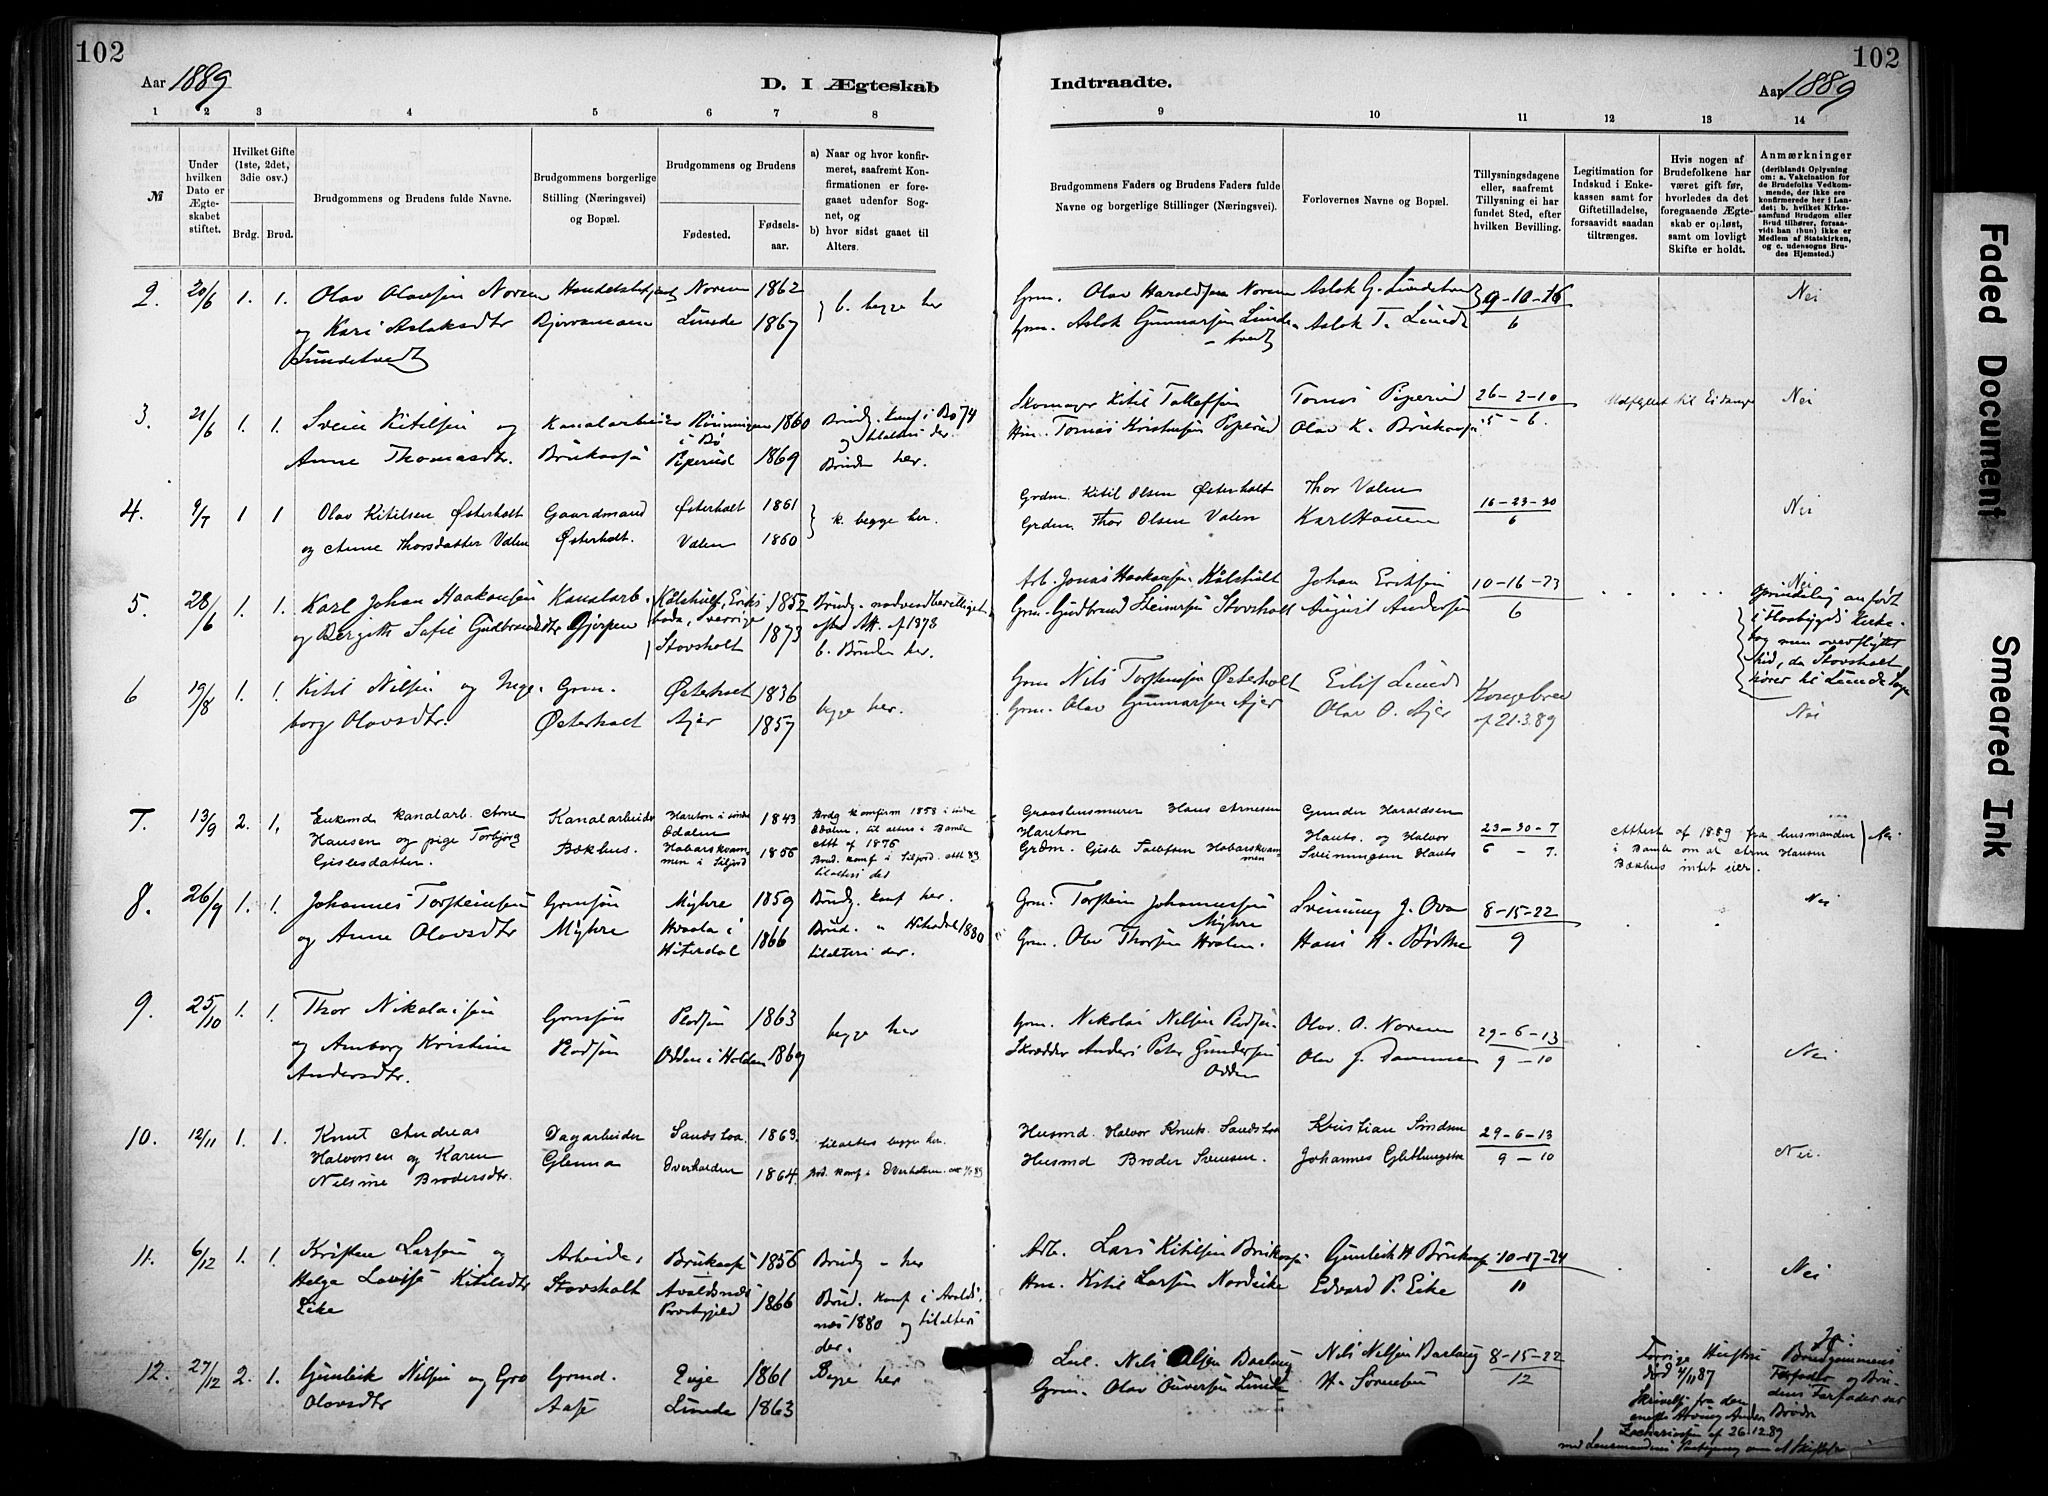 102
102
Aar 1889
D. I Ægteskab
Indtraadte.
Aar 1889
1 2 3 4 5 6 7 8
9 10 11 12 13 14
№
Under hvilken Dato er Ægteskabet stiftet.
Hvilket Gifte (1ste, 2det, 3die osv.)
Brdg. Brud.
Brudgommens og Brudens fulde Navne.
Brudgommens borgerlige Stilling (Næringsvei) og Bopæl.
Brudgommens og Brudens
Fødested.
Fødselsaar.
a) Naar og hvor konfirmeret, saafremt Konfirmationen er foregaaet udenfor Sognet, og
b) hvor sidst gaaet til Alters.
Brudgommens Faders og Brudens Faders fulde Navne og borgerlige Stillinger (Næringsvei).
Forlovernes Navne og Bopæl.
Tillysningsdagene eller, saafremt Tillysning ei har fundet Sted, efter hvilken Bevilling.
Legitimation for Indskud i Enkekassen samt for Giftetilladelse, forsaavidt saadan tiltrænges.
Hvis nogen af Brudefolkene har været gift før, hvorledes da det foregaaende Ægteskab er opløst, samt om lovligt Skifte er holdt.
Anmærkninger
(deriblandt Oplysning om: a. Vakcination for de Brudefolks Vedkommende, der ikke ere konfirmerede her i Landet; b. hvilket Kirkesamfund Brudgom eller Brud tilhører, forsaavidt han (hun) ikke er Medlem af Statskirken, og c. udensogns Brudes Hjemsted.)
2. 20/6 1. 1. Olav Olavsøn Norem
og Kari Aslaksdtr
Lundetvedt
Bjervamoen
Norem 1862
Lunde 1867
b. begge her
Grm. Olav Haroldsøn Norem
Grm. Aslak Gunnarsøn Lunde-
tvedt
Aslak G. Lundetvedt
Aslak T. Lunde
9-10-16
6
Nei
3. 21/6 1. 1. Svein Kitilsøn og
Anne Thomasdtr.
Kanalarbeider
Brukaasø
i Bø 1860
Piperud 1869
Brudg. konf i Bø 74
og tilalters der.
Bruden her.
Skomager Kitil Tollefsøn
Hm. Tomas Kristensøn Piperud
Tomas Piperud
Olav K. Brukaasø
26-2-10
5-6.
Udflyttet til Eidanger
Nei
4. 9/7 1 1 Olav Kitilsen Østerholt
og Anne Thorsdatter Valen
Gaardmand
Østerholt.
Østerholt 1861
Valen 1860
k. begge her.
Grdm. Kitil Olsen Østerholt
Grdm. Thor Olsen Valen
Thor Valen
Karl Hansen
16-23-30
6
Nei
5. 28/6 1. 1. Karl Johan Haakonsøn
og Bergith Sofie Gudbrandsdtr
Kanalarb.
Gjerpen
Kålshult, Eriks
boda, Sverrige 1852
Stovsholt 1873
b. Bruden her.
Arb. Jonas Haakonsøn Kålshult
Grm. Gudbrand Steinarsøn Stovsholt
Johan Eriksøn
August Andersøn
10-16-23
6
Nei
Oprindelig anført
i Flaabygds Kirke-
bog men overflyttet
hid, da Stovsholt
hører til Lunde Sogn
6 19/8 1. 1. Kitil Nilsøn og Inge-
borg Olavsdtr.
Grm.
Østerholt
Østerholt 1836
Ajer 1857
begge her.
Grm Nils Torstensøn Østerholt
Grm. Olav Gunnarsøn Ajer
Eilif Lunde
Olav O. Ajer
Kongebrev
af 21.3.89
Nei
7. 13/9 2. 1. Enkemd kanalarb. Arne
Hansen og pige Torbjørg
Gislesdatter.
Kanalarbeider
Bækhus.
Hareton i søndre
Odalen 1843
Hobarskvam-
men i Siljord 1855
Brdg konfirm 1858 i søndre
Odalen, til alters i Bamle
Att af 1876
Brud. konf i Siljord. att 89
tilalters der
Graashusmurer Hans Arnesen
Hareton
Grdm. Gisle Hobarskvam-
men
Gunder Haraldsen
Hauts. og Halvor
Sveinungsen Hauts
23-30-7
6 - 7.
Attest af 1889 fra lensmanden
i Bamle om at Arne Hansen
Bækhus intet eier.
Nei
8. 26/9 1. 1. Johannes Torsteinsøn
og Anne Olavsdtr
Grmsøn
Myhre
Myhre 1859
Hvaala i
Hiterdal 1866
Brudg. konf her.
Brud. " Hiterdal 1880
tilalters der.
Grm. Torstein Johannessøn
Myhre
Grm. Olav Thorsøn Hvalen.
Sveinung J. Ova
Hans H. Birke
8-15-22
9
Nei
9. 25/10 1. 1. Thor Nikolaisøn
og Amborg Kristine
Andersdtr.
Grmsøn
Rodsøn
Rodsøn 1863
Odden i Holden 1869
begge her
Grm. Nikolai Nilsøn Rodsøn
Skrædder Anders Peter Gundersøn
Odden
Olav. O. Norem
Olav J. Dammen
29-6-13
9-10
Nei
10. 12/11 1. 1. Knut Andreas
Halvorsen og Karen
Nilsine Brodersdtr.
Dagarbeider
Glenna
Sandstaa 1863.
Overhalden 1864.
tilalters begge her.
Brd. konf i Overhalden.
Husmd. Halvor Knuts. Sandstaa
Husmd Broder Svensen.
Kristian
Johannes
29-6-13
9-10
Nei.
11. 6/12 1. 1. Kristen Larsøn og
Helga Lovise Kitilsdtr
Eike
Arbeider
Stovsholt
Brukaasø 1856
Avaldsnæs
Præstgjeld 1866
Brudg - her
Brud. konf i Avalds-
næs 1880 og tilalters
der.
Arb. Lars Kitilsøn Brukaasø
Hm. Kitil Larsøn Nordeike
Gunleik H Brukaasø
Edvard P. Eike
10-17-24
10
Nei
12. 27/12 2. 1. Gunleik Nilsøn og Gro
Olavsdtr
Grmd.
Aase
Evje 1861
Lunde 1863
Begge her
Nils Olsøn Barlaug
Grm. Olav Lunde
Nils Nilsøn Barlaug
H. Sørensøn
8-15-22
12
Forrige Hustru
død 4/11 87
Skrivelse fra den
eneste Arving Anders
Zachariassøn af 26.12.89
med Lensmandens
Ja:
Brudgommens
Farfader og Bru-
dens Farfader var
Brødre
Faded Document
Smeared Ink